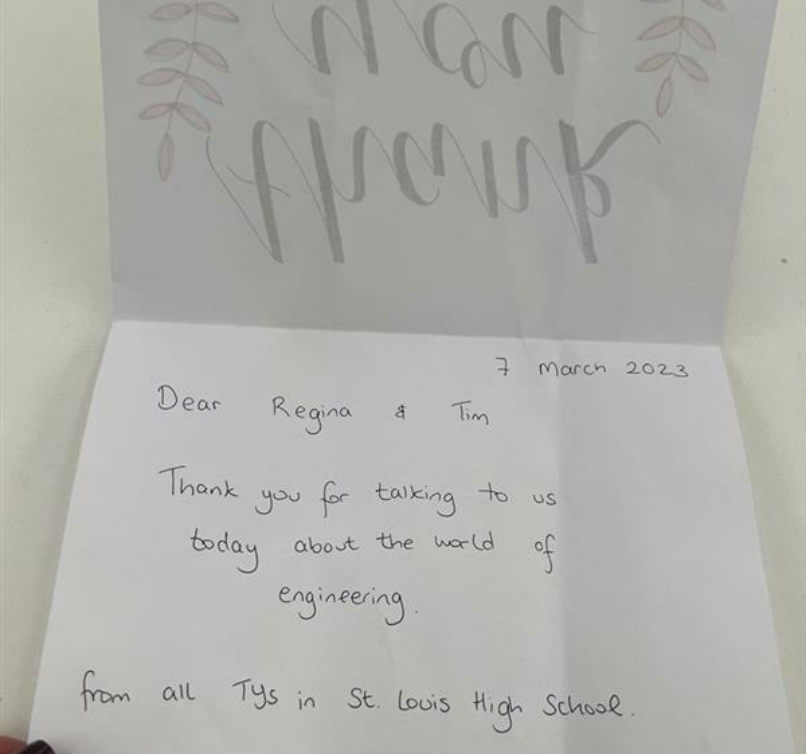 thank
you
7 March 2023
Dear Regina & Tim
Thank you for talking to us
today about the world of
engineering.
from all TYs in St. Louis High School.